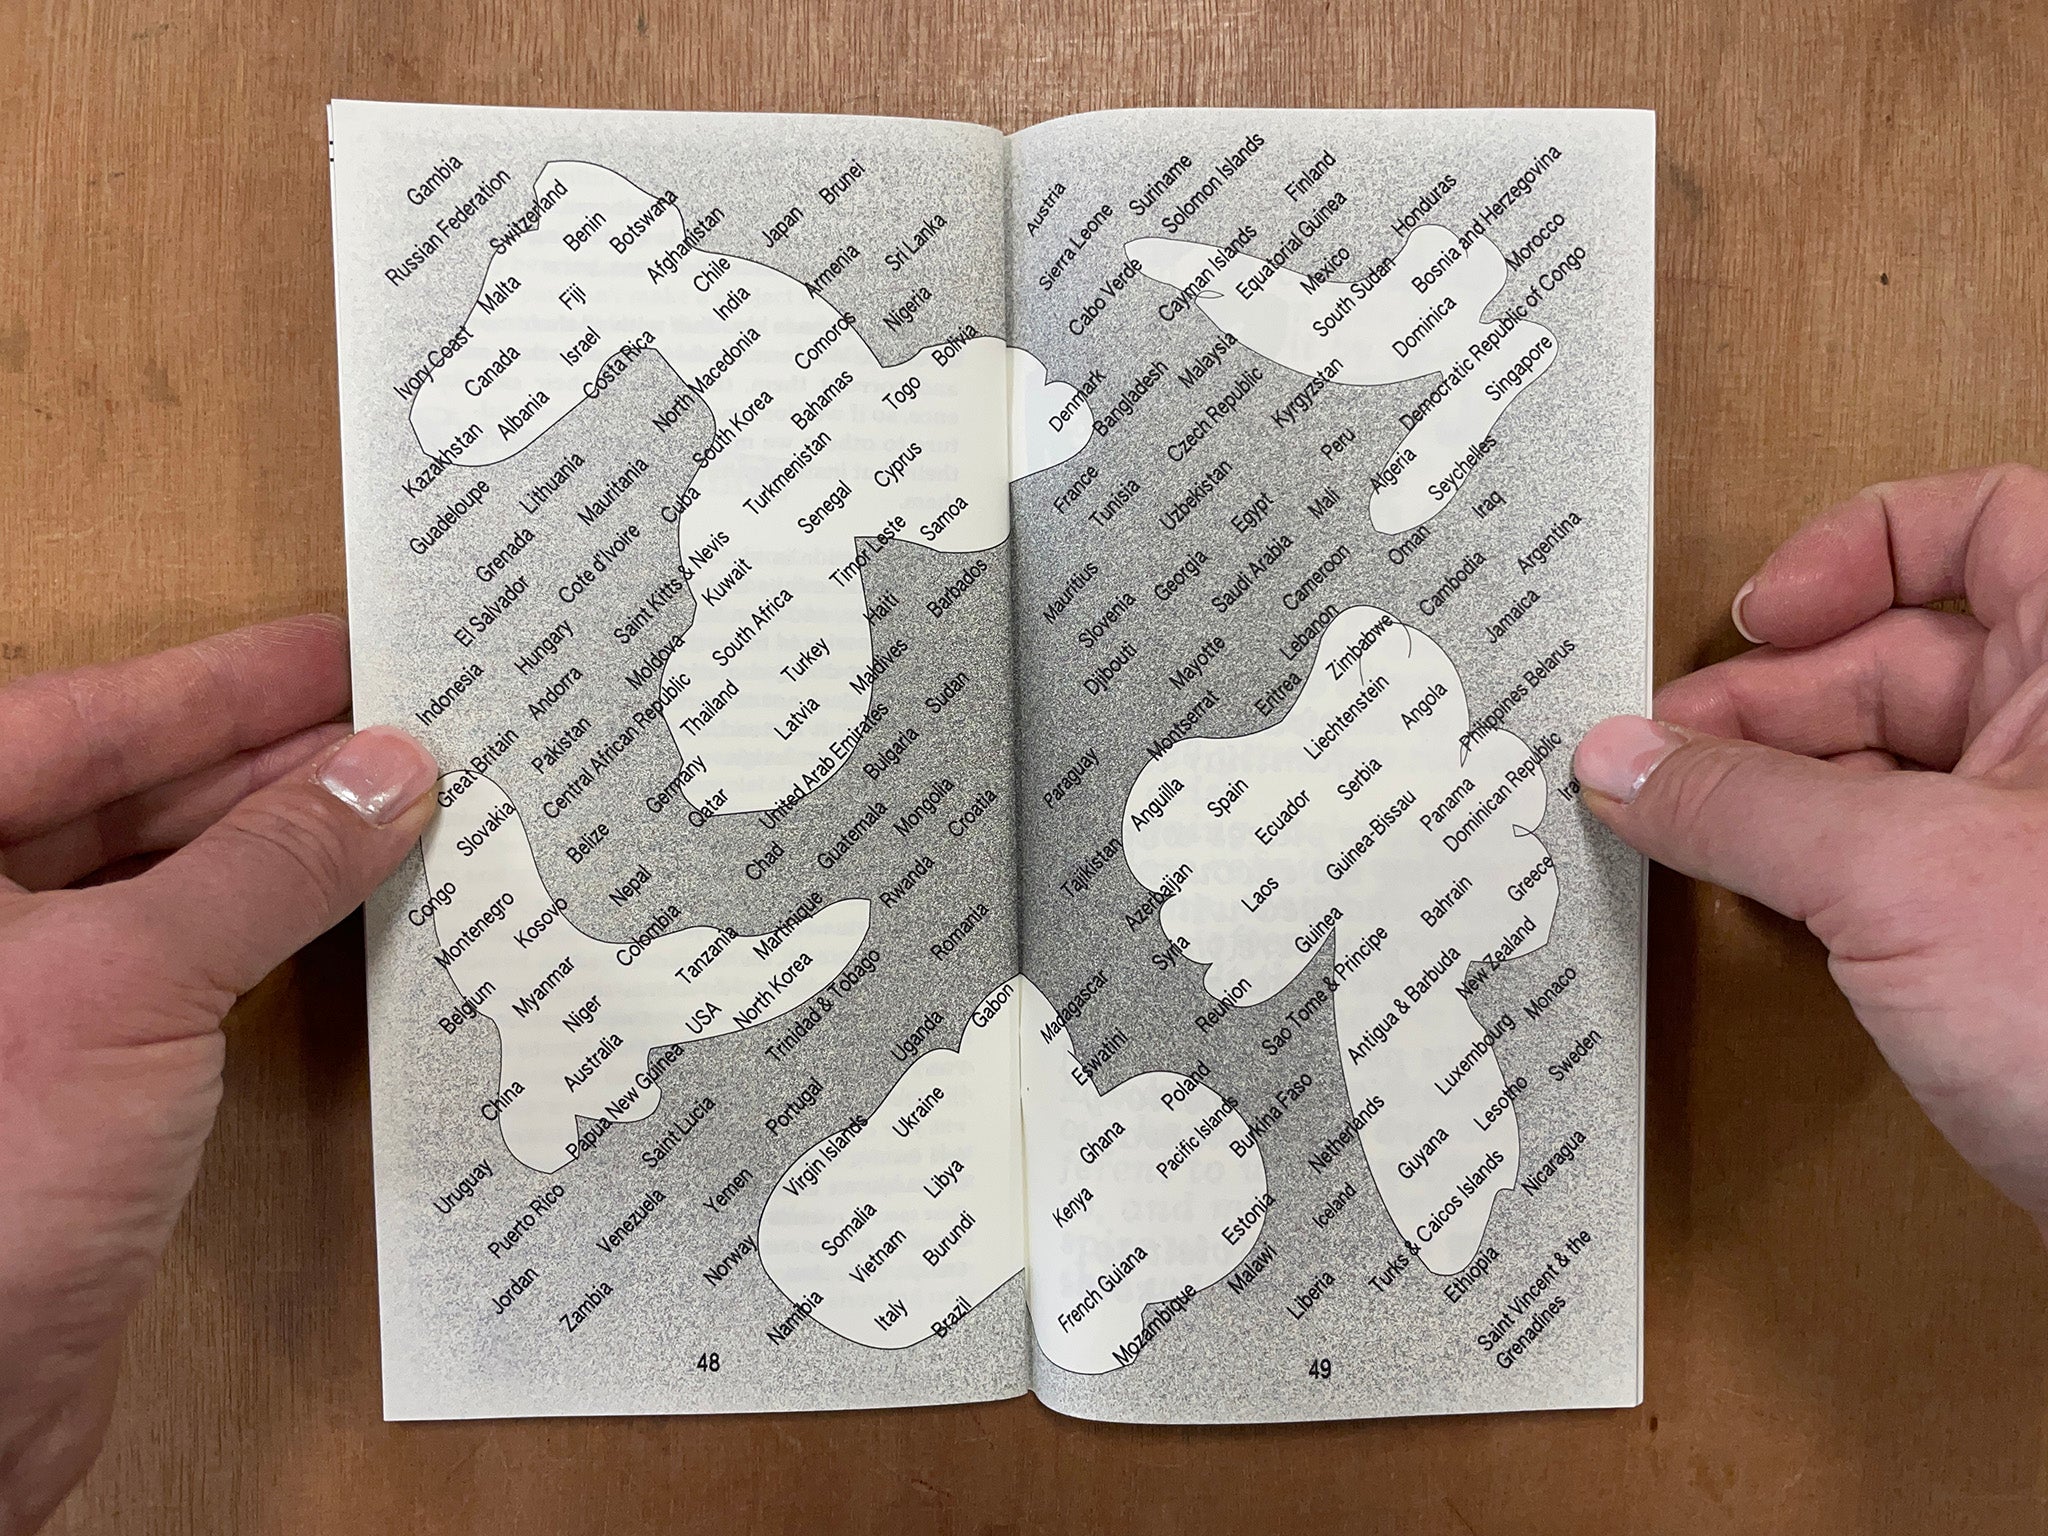 Gambia
Russian Federation
Switzerland
Benin
Botswana
Afghanistan
Japan
Brunei
Malta
Fiji
Chile
India
Armenia
Sri Lanka
Ivory Coast
Canada
Israel
Costa Rica
North Macedonia
Comoros
Nigeria
Bolivia
Kazakhstan
Albania
South Korea
Bahamas
Togo
Guadeloupe
Lithuania
Mauritania
Cuba
Turkmenistan
Senegal
Cyprus
Grenada
Cote d'Ivoire
Saint Kitts & Nevis
Kuwait
Timor Leste
Samoa
El Salvador
Hungary
Moldova
South Africa
Haiti
Barbados
Indonesia
Andorra
Central African Republic
Thailand
Turkey
Maldives
Great Britain
Pakistan
Germany
Latvia
United Arab Emirates
Sudan
Slovakia
Belize
Qatar
Bulgaria
Congo
Montenegro
Kosovo
Nepal
Chad
Guatemala
Mongolia
Croatia
Belgium
Myanmar
Colombia
Tanzania
Martinique
Rwanda
Niger
USA
North Korea
Romania
China
Australia
Papua New Guinea
Trinidad & Tobago
Uganda
Gabon
Uruguay
Saint Lucia
Portugal
Ukraine
Puerto Rico
Venezuela
Yemen
Virgin Islands
Libya
Jordan
Zambia
Norway
Somalia
Vietnam
Burundi
Namibia
Italy
Brazil
48
Austria
Suriname
Solomon Islands
Finland
Sierra Leone
Cabo Verde
Cayman Islands
Equatorial Guinea
Mexico
Honduras
Bosnia and Herzegovina
Morocco
South Sudan
Dominica
Democratic Republic of Congo
Denmark
Bangladesh
Malaysia
Czech Republic
Kyrgyzstan
Singapore
France
Tunisia
Uzbekistan
Egypt
Peru
Mali
Algeria
Seychelles
Iraq
Mauritius
Slovenia
Georgia
Saudi Arabia
Cameroon
Oman
Cambodia
Argentina
Djibouti
Mayotte
Lebanon
Zimbabwe
Jamaica
Montserrat
Eritrea
Liechtenstein
Angola
Philippines Belarus
Paraguay
Anguilla
Spain
Ecuador
Serbia
Guinea-Bissau
Panama
Dominican Republic
Tajikistan
Azerbaijan
Laos
Guinea
Bahrain
Greece
Syria
Reunion
Sao Tome & Principe
Antigua & Barbuda
New Zealand
Monaco
Madagascar
Eswatini
Poland
Luxembourg
Sweden
Ghana
Pacific Islands
Burkina Faso
Netherlands
Guyana
Lesotho
Kenya
Estonia
Iceland
Turks & Caicos Islands
Nicaragua
French Guiana
Mozambique
Malawi
Liberia
Ethiopia
Saint Vincent & the
Grenadines
49